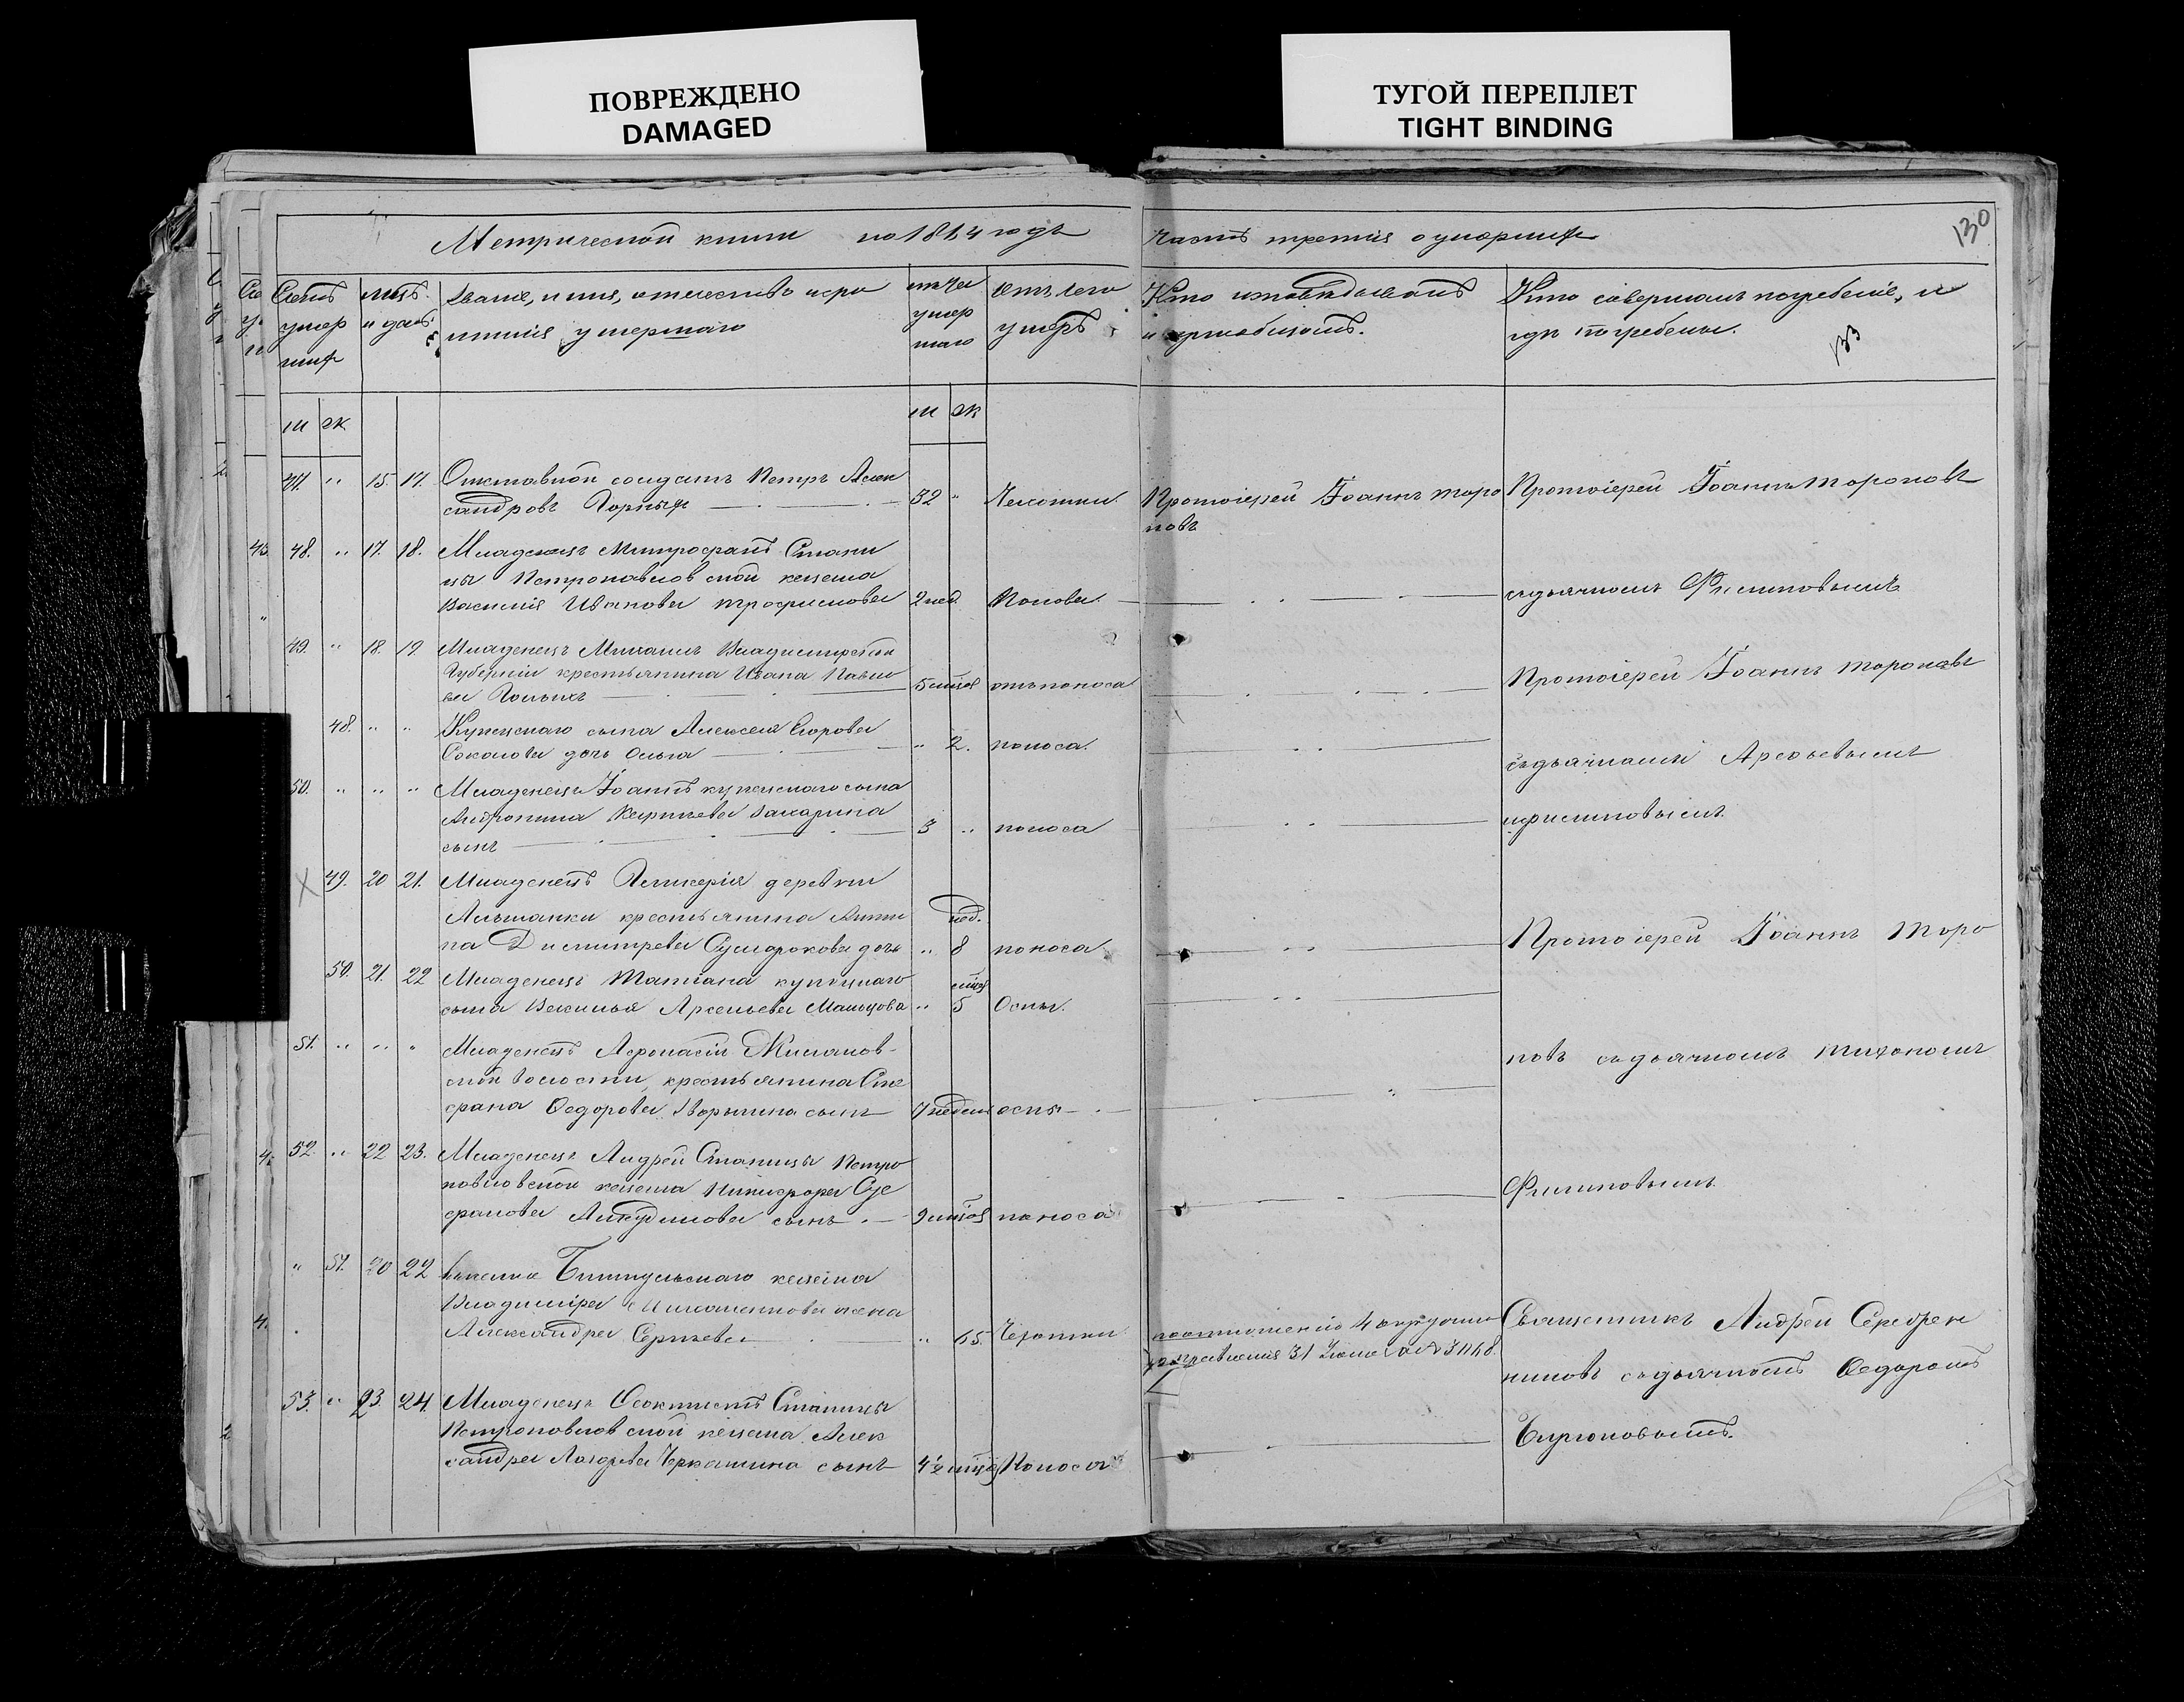 ПОВРЕЖДЕНО
DAMAGED
ТУГОЙ ПЕРЕПЛЕТ
TIGHT BINDING
Метрической книги на 1864 годъ
Часть третія о умершихъ
130
Счетъ умер шихъ
мѣс. и день
Званіе, имя, отчество и фа
милія умершаго
лѣта умер шаго
Отъ чего умеръ
Кто исповѣдывалъ
и пріобщалъ.
Кто совершалъ погребеніе, и
гдѣ погребены.
133
м ж
м ж
47. " 15. 17. Отставной солдатъ Петръ Алек
сандровъ Горныхъ 52 " Чахотки. Протоіерей Іоаннъ Торо
повъ
Протоіерей Іоаннъ Тороповъ
48. " 17. 18. Младенецъ Митрофанъ Стани
цы Петропавловской казака
Василія Иванова Трофимова 2 нед. Поноса.
съ дьячкомъ Филиповымъ
49. " 18. 19. Младенецъ Михаилъ Владимирской
Губерніи крестьянина Ивана Павло
ва 5 мѣся отъ поноса
Протоіерей Іоаннъ Тороповъ
48. " " Купецкаго сына Алексея Егорова
Соколова дочь Ольга " 2. поноса.
съ дьячками Арефьевымъ
50. " " " Младенецъ Іоаннъ купецкаго сына
Захарина
сынъ 3 " поноса
и Филиповымъ.
49. 20 21. Младенецъ Гликерія деревни
крестьянина Анти
па Димитрева Сумарокова дочь " нед. 8 поноса.
Протоіерей Іоаннъ Торо
50. 21. 22 Младенецъ Татіана купецкаго
сына Василья Арсеньева Мальцова " мѣся 5 Оспы.
51. " " " Младенецъ Афонасій
ской волости, крестьянина Сте
фана Федорова сынъ 7 недель оспы
повъ съ дьячкомъ Тихономъ
52. " 22 23. Младенецъ Андрей Станицы Петро
повловской казака Никифора Сте
фанова Анкудинова сынъ. 9 мѣся поноса
Филиповымъ.
" 51. 20 22 казака
Владиміра жена
Александра Сергѣева " 65. Чахотки
по отношенію 4
правленія 31 Іюля за № 3148.
Священникъ Андрей Серебрен
никовъ съ дьячкомъ Федоромъ
Бирюковымъ.
53. " 23. 24. Младенецъ Феоктистъ Станицы
Петроповловской казака Алек
сандра Лазарева Черкашина сынъ 4 ½ мѣся Поноса